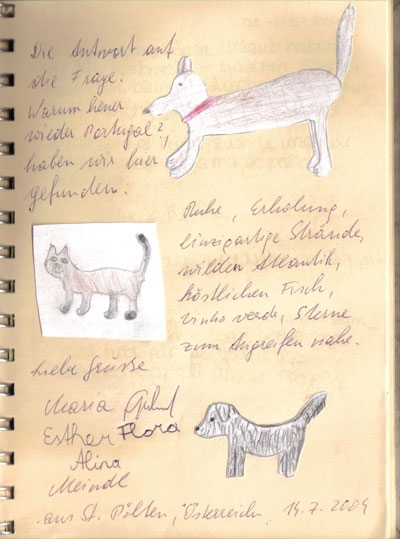 Die Antwort auf
die Frage:
Warum heuer
wieder Portugal?
haben wir hier
gefunden:
Ruhe, Erholung,
einzigartige Strände,
wilden Atlantik,
köstlichen Fisch,
Vinho verde, Sterne
zum Angreifen nahe.
Liebe Grüsse
Maria
Esther Flora
Alina
Meindl
aus St. Pölten, Österreich 14.7.2009